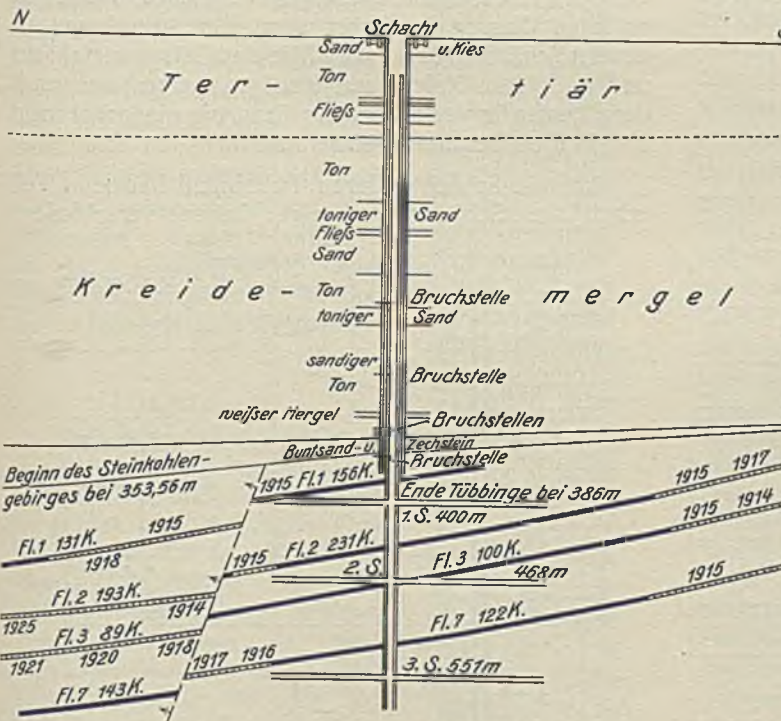 N
Schacht
Sand u. Kies
Ton
Ter- tiär
Fließ
Ton
toniger Sand
Fließ
Sand
Kreide- Ton mergel
Bruchstelle
toniger Sand
sandiger
Ton Bruchstelle
weißer Mergel Bruchstellen
Buntsand- u. Zechstein
Bruchstelle
Beginn des Steinkohlen-
gebirges bei 353,56 m
1915 Fl. 1 156 K.
Ende Tübbinge bei 386 m
1. S. 400 m
1915 1917
1915 1914
Fl. 1 131 K. 1915
1918
1915 Fl. 2 231 K.
Fl. 3 100 K.
2. S. 468 m
1915
Fl. 2 193 K.
1925 1914
Fl. 3 89 K.
1921 1920 1918
Fl. 7 122 K.
1917 1916
3. S. 551 m
Fl. 7 143 K.